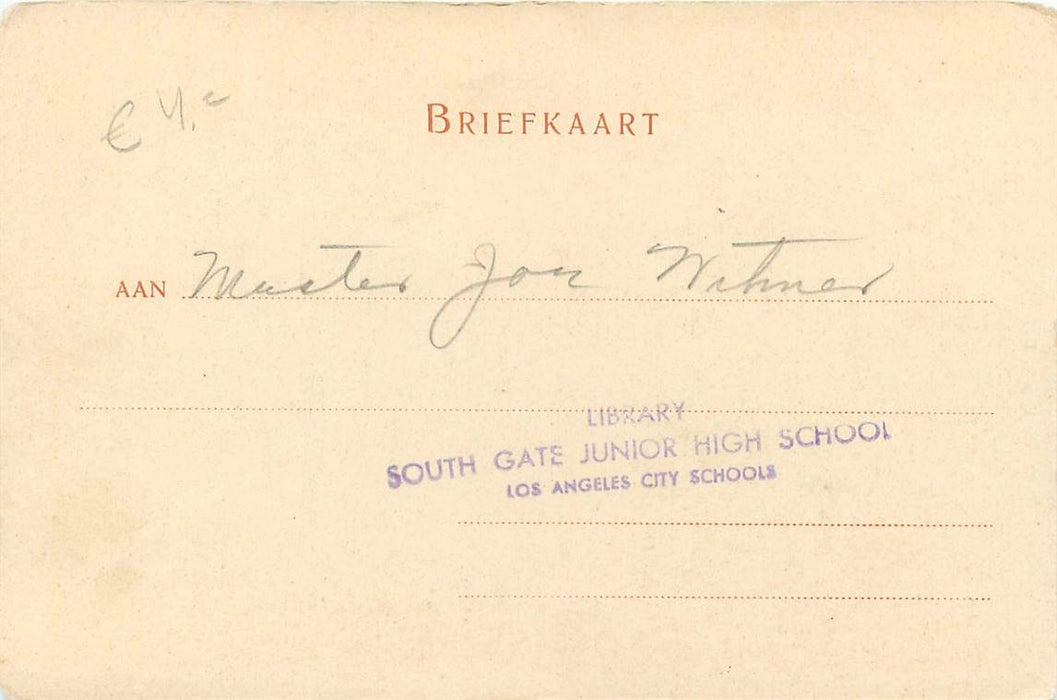 € 4,-
BRIEFKAART
AAN Master Jon Witmer
LIBRARY
SOUTH GATE JUNIOR HIGH SCHOOL
LOS ANGELES CITY SCHOOLS